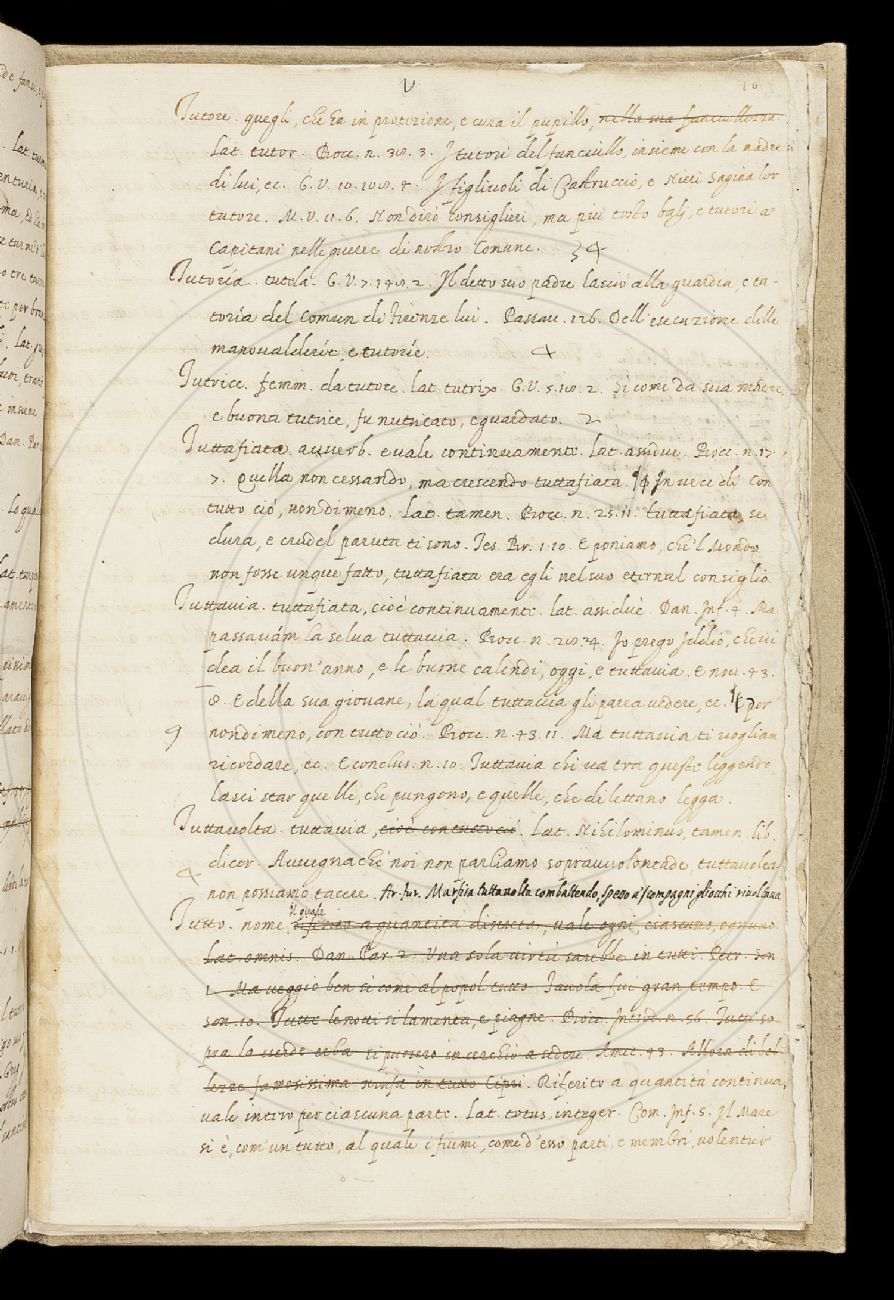 V
16
Tutore. quegli, che ha in protezione, e cura il pupillo, nella sua fanciullezza.
Lat. tutor. Bocc. n. 38. 3. I tutori del fanciullo, insieme con la madre
di lui, ec. G. V. 10. 108. 4. I figliuoli di Castruccio, e Nieri Sagina lor
tutore. M. V. 11. 6. Non dirò consiglieri, ma più tosto balj, e tutori a
Capitani nelle guerre di nostro Comune.
Tutoría. tutela. G. V. 7. 148. 2. Il detto suo padre lasciò alla guardia, e tu-
toría del Comun di Firenze lui. Passav. 126. Dell'esecuzione delle
manovalderíe, e tutoríe.
Tutrice. femm. da tutore. lat. tutrix. G. V. 5. 18. 2. Sì come da sua madre,
e buona tutrice, fu nutricato, e guardato.
Tuttafiata. avverb. e vale continuamente. lat. assidue. Bocc. n. 17.
7. Quella non cessando, ma crescendo tuttafiata. In vece di con
tutto ciò, nondimeno. Lat. tamen. Bocc. n. 25. 11. tuttafiata, se
dura, e crudel paruta ti sono. Tes. Br. 1. 10. E poniamo, che'l Mondo
non fosse unque fatto, tuttafiata era egli nel suo eternal consiglio
Tuttavia. tuttafiata, cioè continuamente. lat. assiduè. Dan. Inf. 4. Ma
passavám la selva tuttavia. Bocc. n. 28. 24. Io prego Iddio, che vi
dea il buon'anno, e le buone calendi, oggi, e tuttavia. E nov. 43.
8. E della sua giovane, la qual tuttavia gli parea vedere, ec. E per
nondimeno, con tutto ciò. Bocc. n. 43. 11. Ma tuttavia ti vogliam
ricordare, ec. E conclus. n. 10. Tuttavia chi va tra queste leggendo
lasci star quelle, che pungono, e quelle, che dilettano legga.
Tuttavolta. tuttavia, cioè con tutto ciò. Lat. Nihilominus, tamen. lib.
dicer. Avvegnachè noi non parliamo sopravvolontade, tuttavolta
non possiamo tacere. Ar. fur. Marfisa tuttavolta combattendo, spesso a' compagni gliocchi rivoltava
il quale
Tutto. nome, riferito a quantità discreta, vale ogni, ciascuno, ognuno.
Lat. omnis. Dan. Par. 2. Una sola virtù sarebbe in tutti. Petr. Son
1. Ma veggio ben sì come al popol tutto Favola fui gran tempo. E
son. 10. Tutte le notti si lamenta, e piagne. Bocc. Introd. n. 56. Tutti so
pra la verde erba si puosero in cerchio a sedere. Amet. 43. Allora di bel
lezze famosissima ninfa in tutto Cipri. Riferito a quantità continua,
vale intero per ciascuna parte. Lat. totus, integer. Com. Inf. 5. Il Mare
si è, com'un tutto, al quale i fiumi, come d'esso parti, e membri, volentier